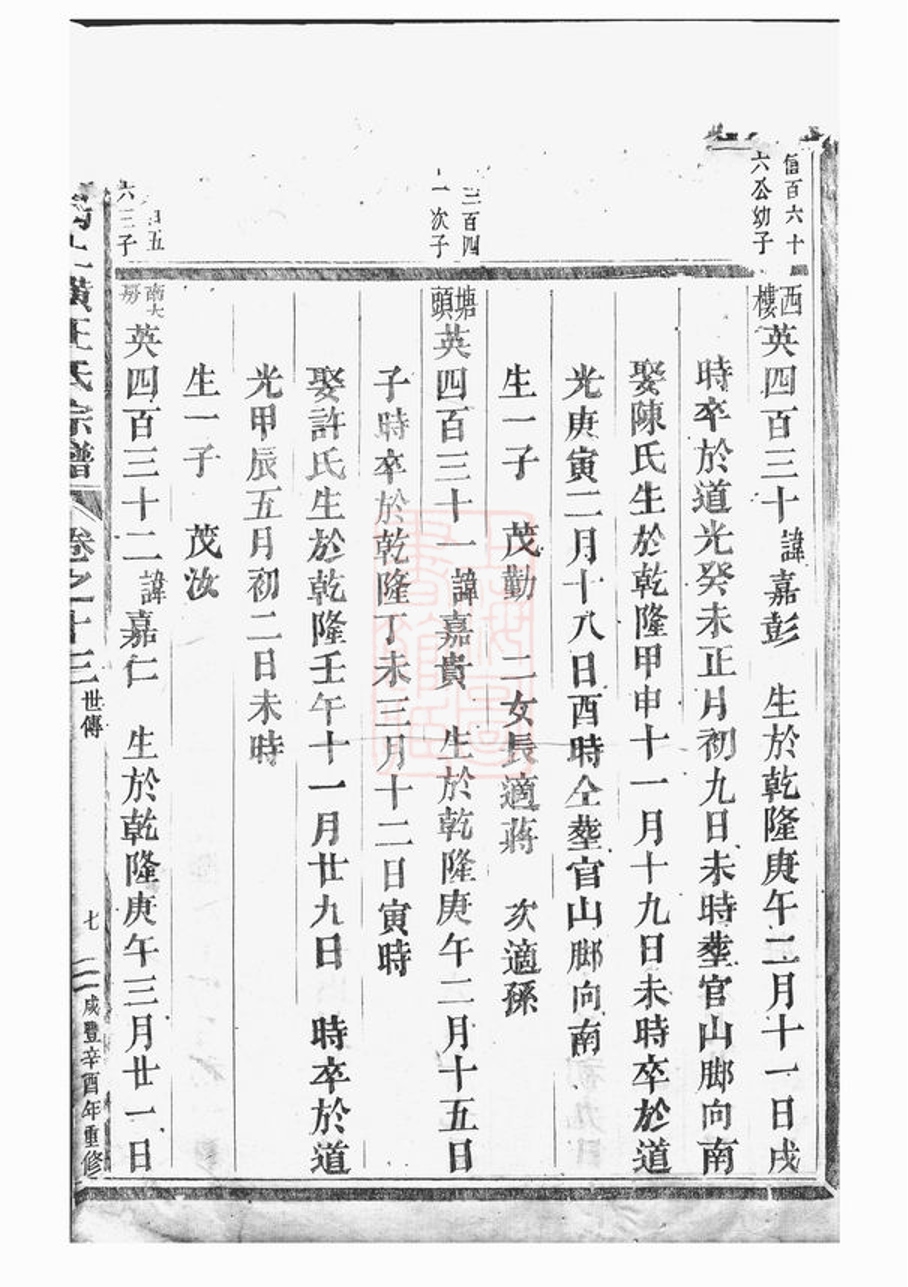 信百六十
六公幼子
西
樓
英四百三十 諱嘉彭 生於乾隆庚午二月十一日戌
時卒於道光癸未正月初九日未時塟官山脚向南
娶陳氏生於乾隆甲申十一月十九日未時卒於道
光庚寅二月十八日酉時仝塟官山脚向南
生一子 茂勤 二女長適蔣 次適孫
三百四
一次子
塘
頭
英四百三十一諱嘉貴 生於乾隆庚午二月十五日
子時卒於乾隆丁未三月十二日寅時
娶許氏生於乾隆壬午十一月廿九日 時卒於道
光甲辰五月初二日未時
生一子 茂汝
五
六三子
南大
房
英四百三十二諱嘉仁 生於乾隆庚午三月廿一日
橫王氏宗譜 卷之十三 世傳 七 咸豐辛酉年重修